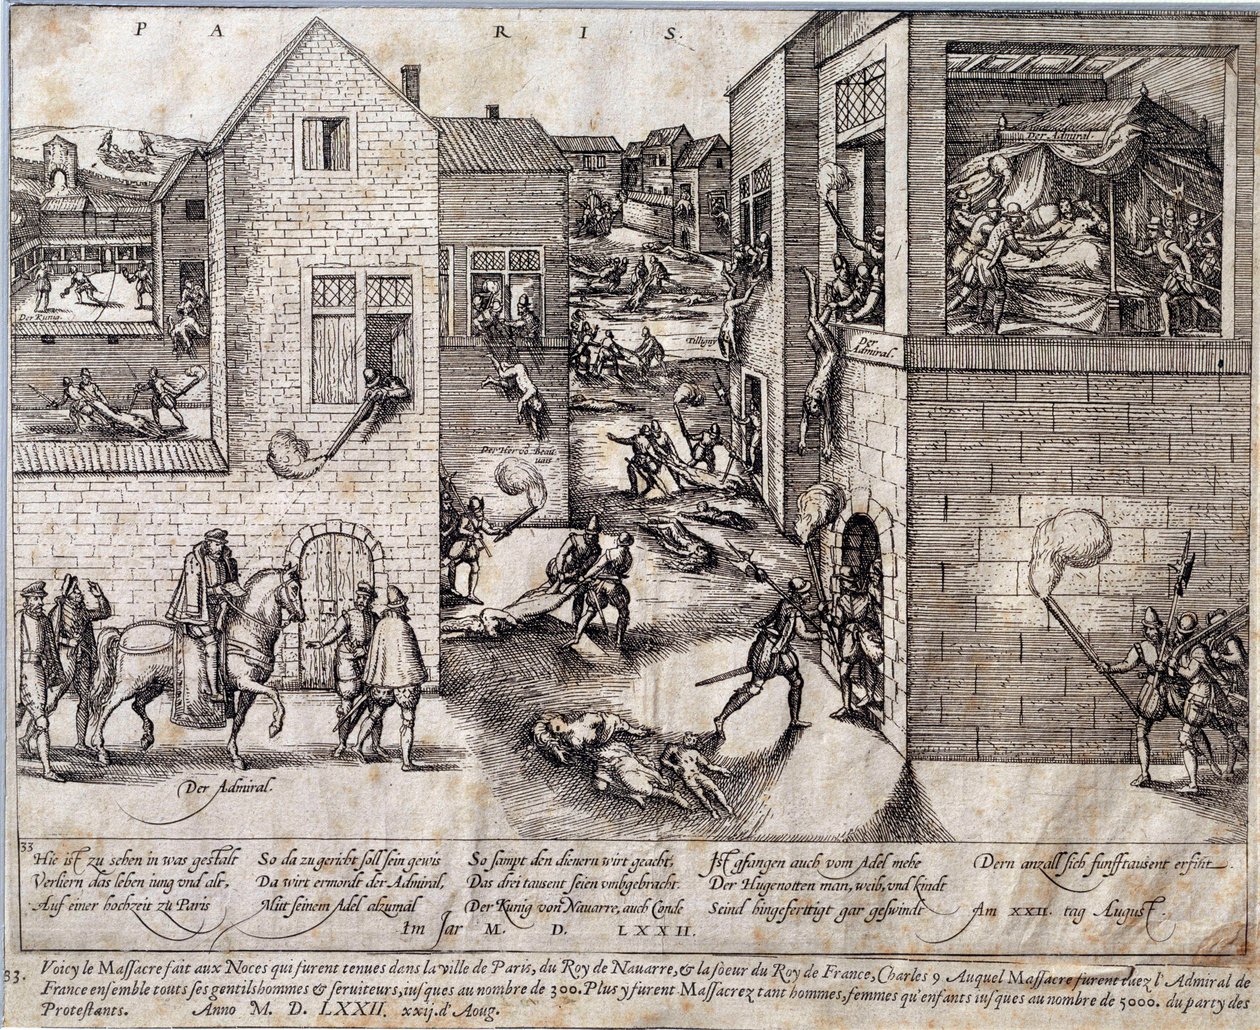 PARIS.
Der Admiral.
Der Kunig.
Tilligny
Der
Admiral.
Der Her võ Beau
uait
Der Admiral.
33
Hie ist zu sehen in was gestalt
Verliern das leben iung vnd alt,
Auf einer hochzeit zu Paris
So da zugericht soll sein gewis
Da wirt ermordt der Admiral,
Mit seinem Adel alzumal
So sampt den dienern wirt geacht,
Das drei tausent seien vmbgebracht.
Der Kunig von Nauarre, auch Conde
Ist gfangen auch vom Adel mehe
Der Hugenotten man, weib, vnd kindt
Seind hingefertigt gar geswindt
Dern anzall sich funfftausent erfint
Am XXII. tag August.
Im Jar M. D. LXXII.
33. Voicy le Massacre fait aux Noces qui furent tenues dans la ville de Paris, du Roy de Nauarre, & la soeur du Roy de France, Charles 9 Auquel Massacre furent tuez l'Admiral de
France ensemble touts ses gentilshommes & seruiteurs, iusques au nombre de 300. Plus y furent Massacrez tant hommes, femmes qu'enfants iusques au nombre de 5000. du party des
Protestants. Anno M. D. LXXII. xxij. d'Aoug.